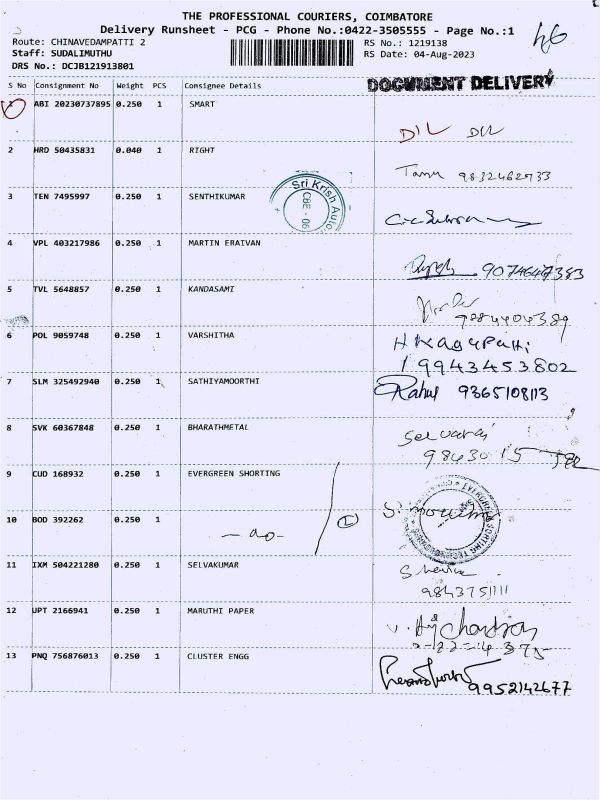 THE PROFESSIONAL COURIERS, COIMBATORE
Delivery Runsheet - PCG - Phone No.:0422-3505555 - Page No.:1
Route: CHINAVEDAMPATTI 2 RS No.: 1219138
Staff: SUDALIMUTHU RS Date: 04-Aug-2023
DRS No.: DCJB121913801
S No Consignment No Weight PCS Consignee Details DOCUMENT DELIVERY
1 ABI 20230737895 0.250 1 SMART
DIL DIL
2 HRD 50435831 0.040 1 RIGHT
9832462733
3 TEN 7495997 0.250 1 SENTHIKUMAR
Sri Krish Auto
CBE - 06
4 VPL 403217986 0.250 1 MARTIN ERAIVAN
9074647383
5 TVL 5648857 0.250 1 KANDASAMI
9884404389
6 POL 9059748 0.250 1 VARSHITHA
19943453802
7 SLM 325492940 0.250 1 SATHIYAMOORTHI
Rahul 9365108113
8 SVK 60367848 0.250 1 BHARATHMETAL
Selvaraj
9 CUD 168932 0.250 1 EVERGREEN SHORTING
10 BOD 392262 0.250 1
- do -
11 IXM 504221280 0.250 1 SELVAKUMAR
9843751111
12 UPT 2166941 0.250 1 MARUTHI PAPER
13 PNQ 756876013 0.250 1 CLUSTER ENGG
9952142677